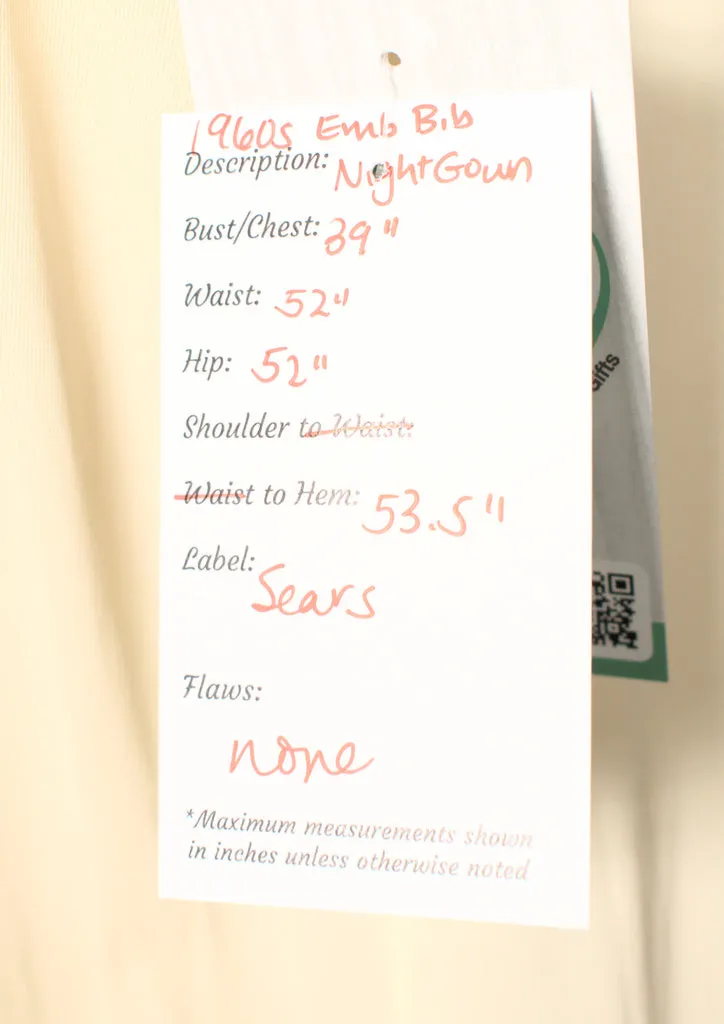 1960s Emb Bib
Description: NightGown
Bust/Chest: 39"
Waist: 52"
Hip: 52"
Shoulder to Waist:
Waist to Hem: 53.5"
Label: Sears
Flaws:
none
*Maximum measurements shown
in inches unless otherwise noted
Gifts